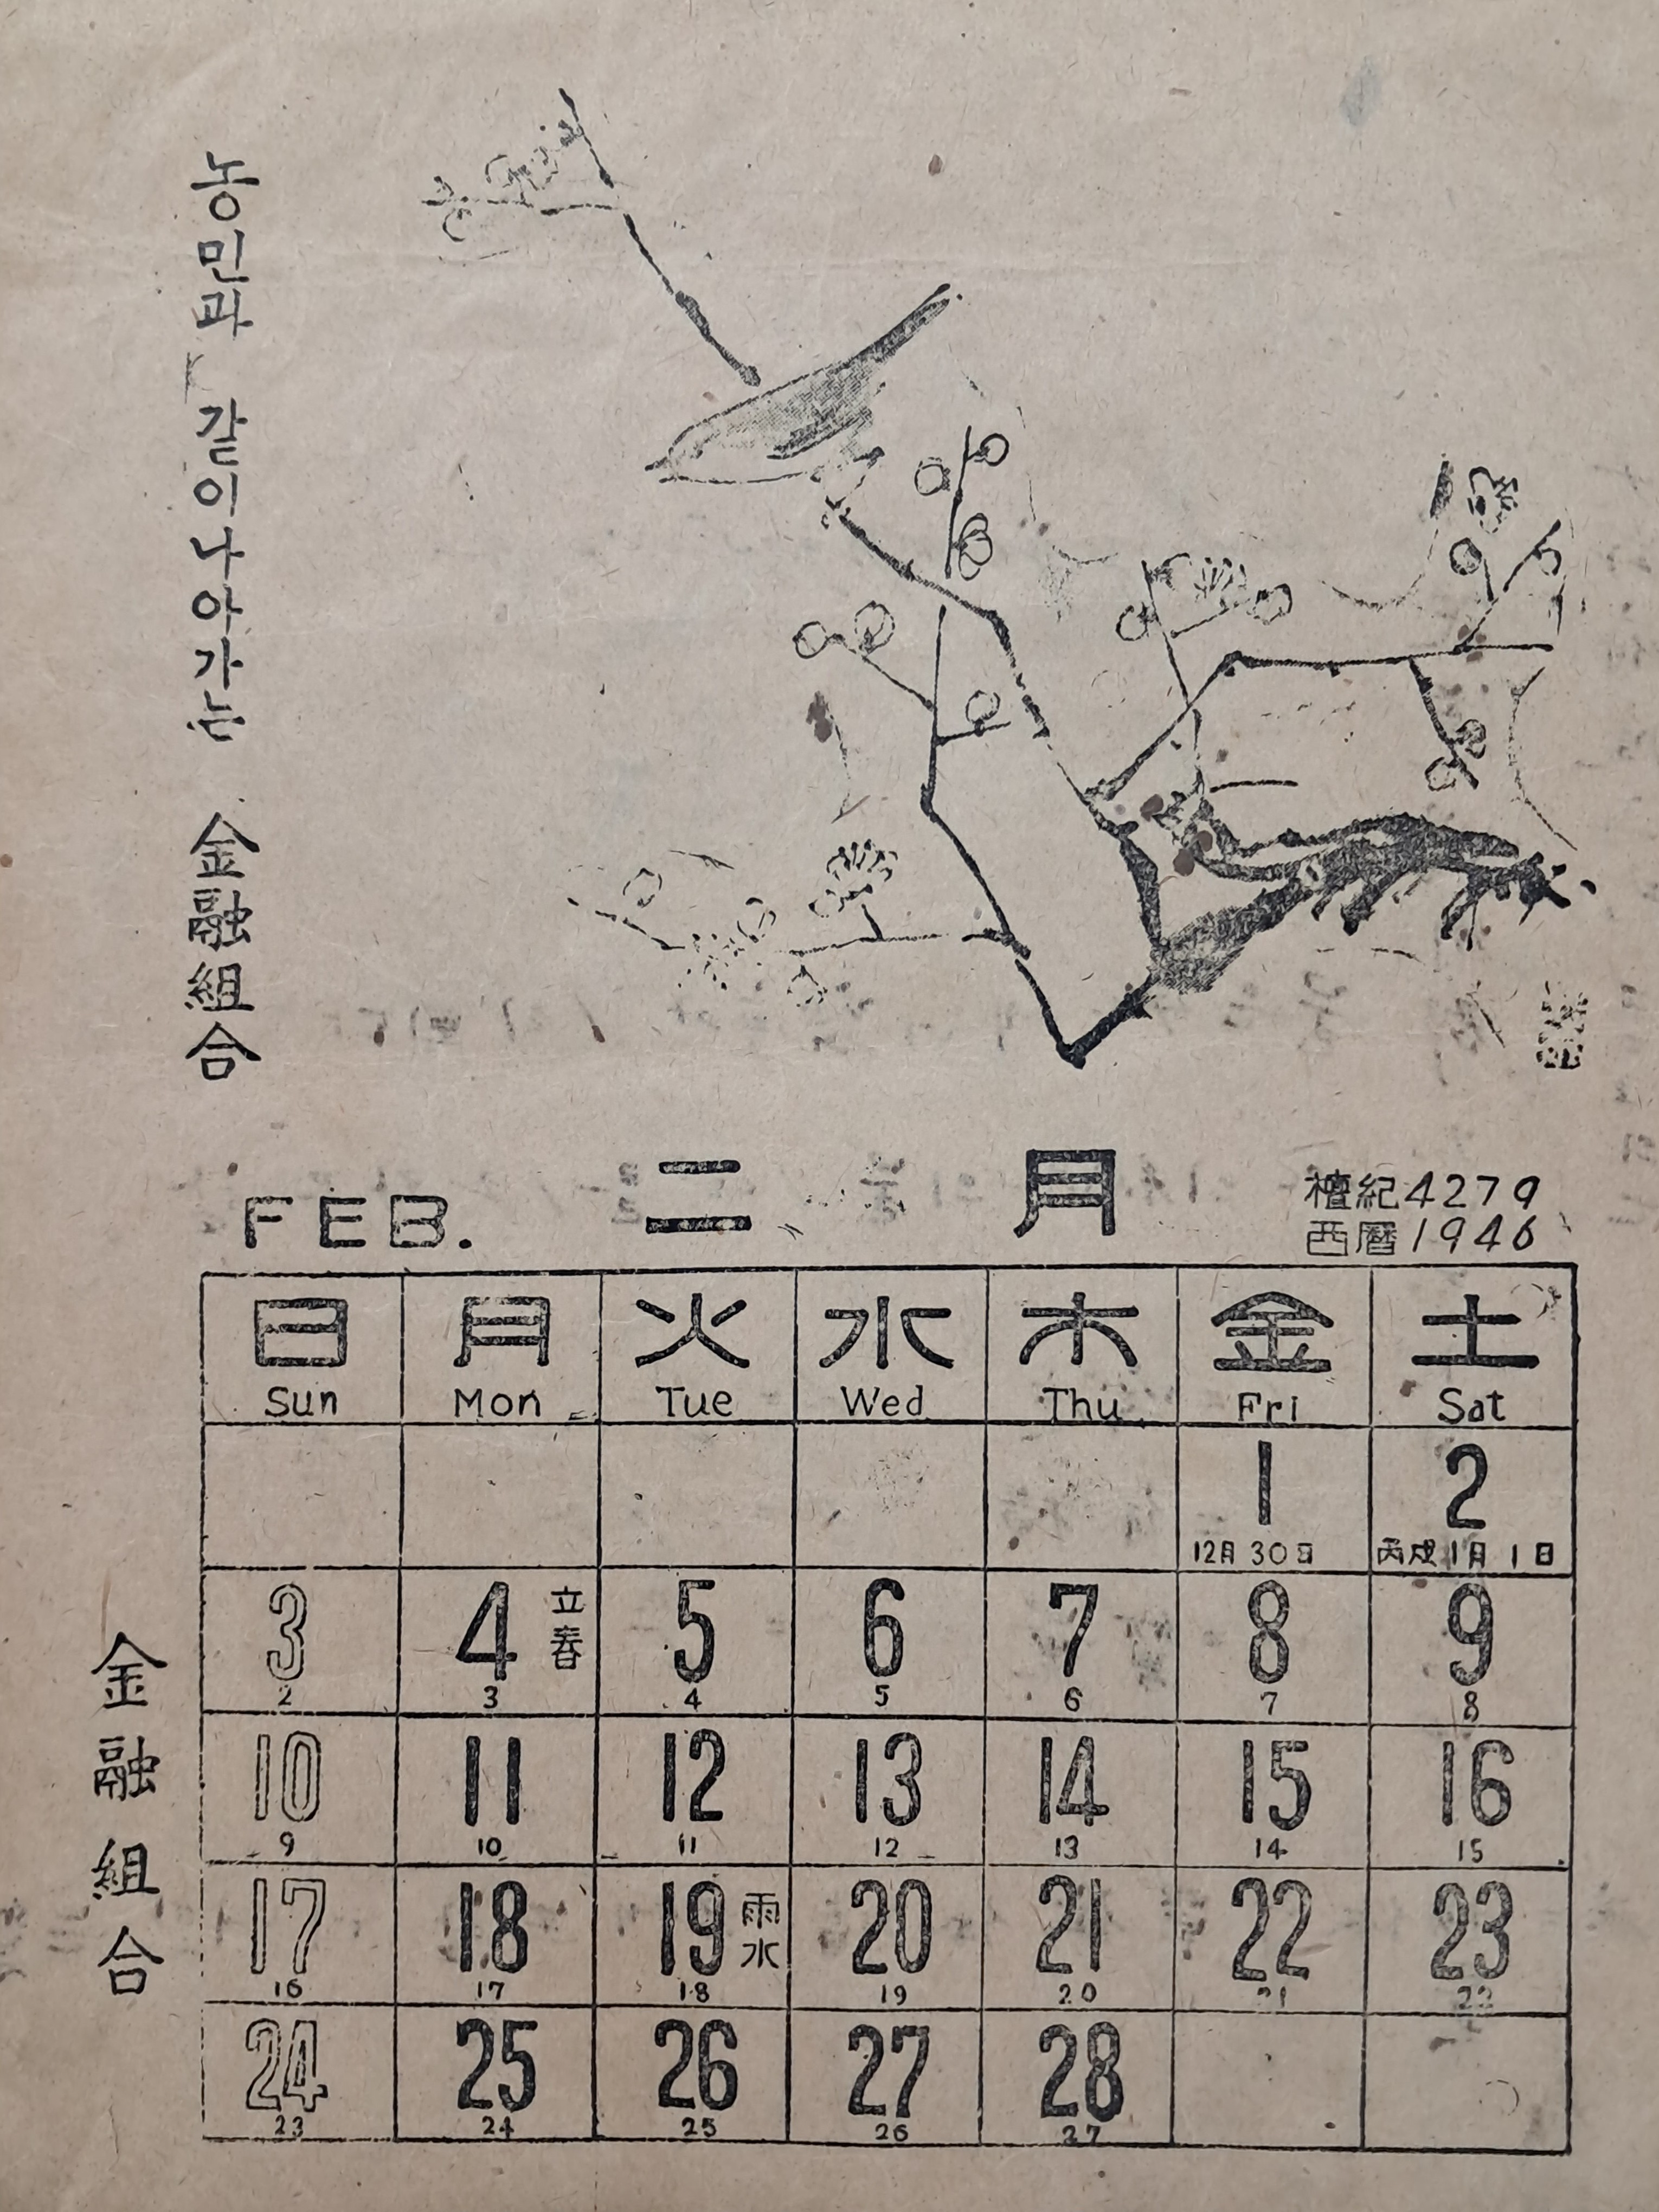 농민과 같이 나아가는 金融組合
FEB. 二月
檀紀4279
西曆1946
日 月 火 水 木 金 土
Sun Mon Tue Wed Thu Fri Sat
1 2
12月30日 丙戌1月1日
3 4 立春 5 6 7 8 9
2 3 4 5 6 7 8
10 11 12 13 14 15 16
9 10 11 12 13 14 15
17 18 19 雨水 20 21 22 23
16 17 18 19 20 21 22
24 25 26 27 28
23 24 25 26 27
金融組合